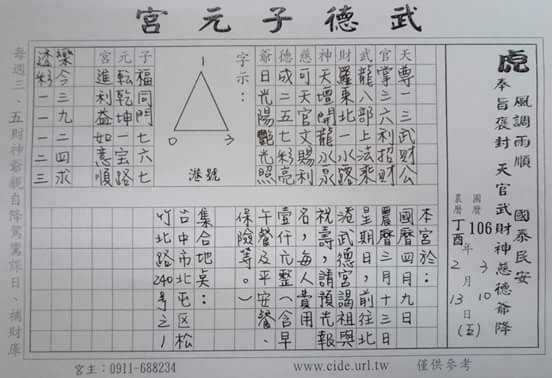 武德子元宮
虎
風調雨順 國泰民安
奉旨褒封 天官武財神慈德爺降
國曆 106年 3 10
農曆 丁酉 2月 13日(五)
天尊一三武財公
官掌三六利財
武龍八部上法乘
財羅東北一水路
神天壇開龍水泉
慈可天官文賜利
德成二五七彩亮
爺日光陽艷光照
字示：
1
0 3
港號
子福同門七六七
元轉乾坤一宝路
宮進利益如意順
樂今三九一二求
透彩一一二四三
本宮於：
國曆四月九日
農曆三月十三日
星期日，前往北
港武德宮謁祖與
祝壽，請預先報
名，每人費用
壹仟元整(含早
午餐及平安餐、
保險等。)
集合地桌：
台中市北屯区松
竹北路240号之1
每週三、五財神爺親自降駕濟課日、補財庫
宮主：0911-688234
www.cide.url.tw
僅供參考